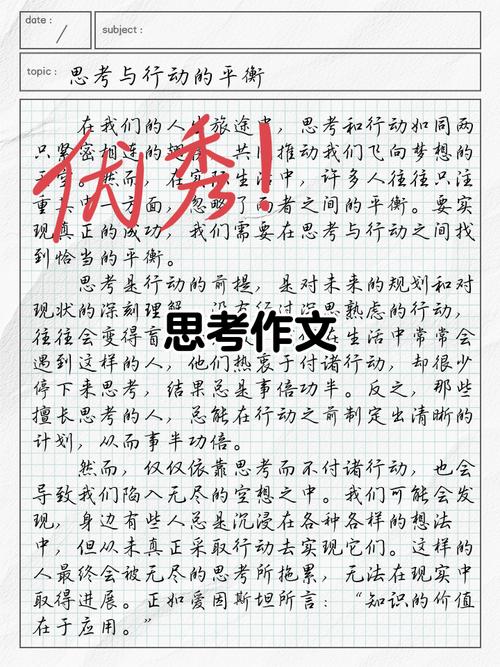 date:
subject:
topic: 思考与行动的平衡
在我们的人生旅途中，思考和行动如同两
只紧密相连的翅膀，共同推动我们飞向梦想的
天空。然而，在实际生活中，许多人往往只注
重其中一方面，忽略了两者之间的平衡。要实
现真正的成功，我们需要在思考与行动之间找
到恰当的平衡。
优秀！
思考是行动的前提，是对未来的规划和对
现状的深刻理解。没有经过深思熟虑的行动，
往往会变得盲
生活中常常会
思考作文
遇到这样的人，他们热衷于付诸行动，却很少
停下来思考，结果总是事倍功半。反之，那些
擅长思考的人，总能在行动之前制定出清晰的
计划，从而事半功倍。
然而，仅仅依靠思考而不付诸行动，也会
导致我们陷入无尽的空想之中。我们可能会发
现，身边有些人总是沉浸在各种各样的想法
中，但从未真正采取行动去实现它们。这样的
人最终会被无尽的思考所拖累，无法在现实中
取得进展。正如爱因斯坦所言：“知识的价值
在于应用。”